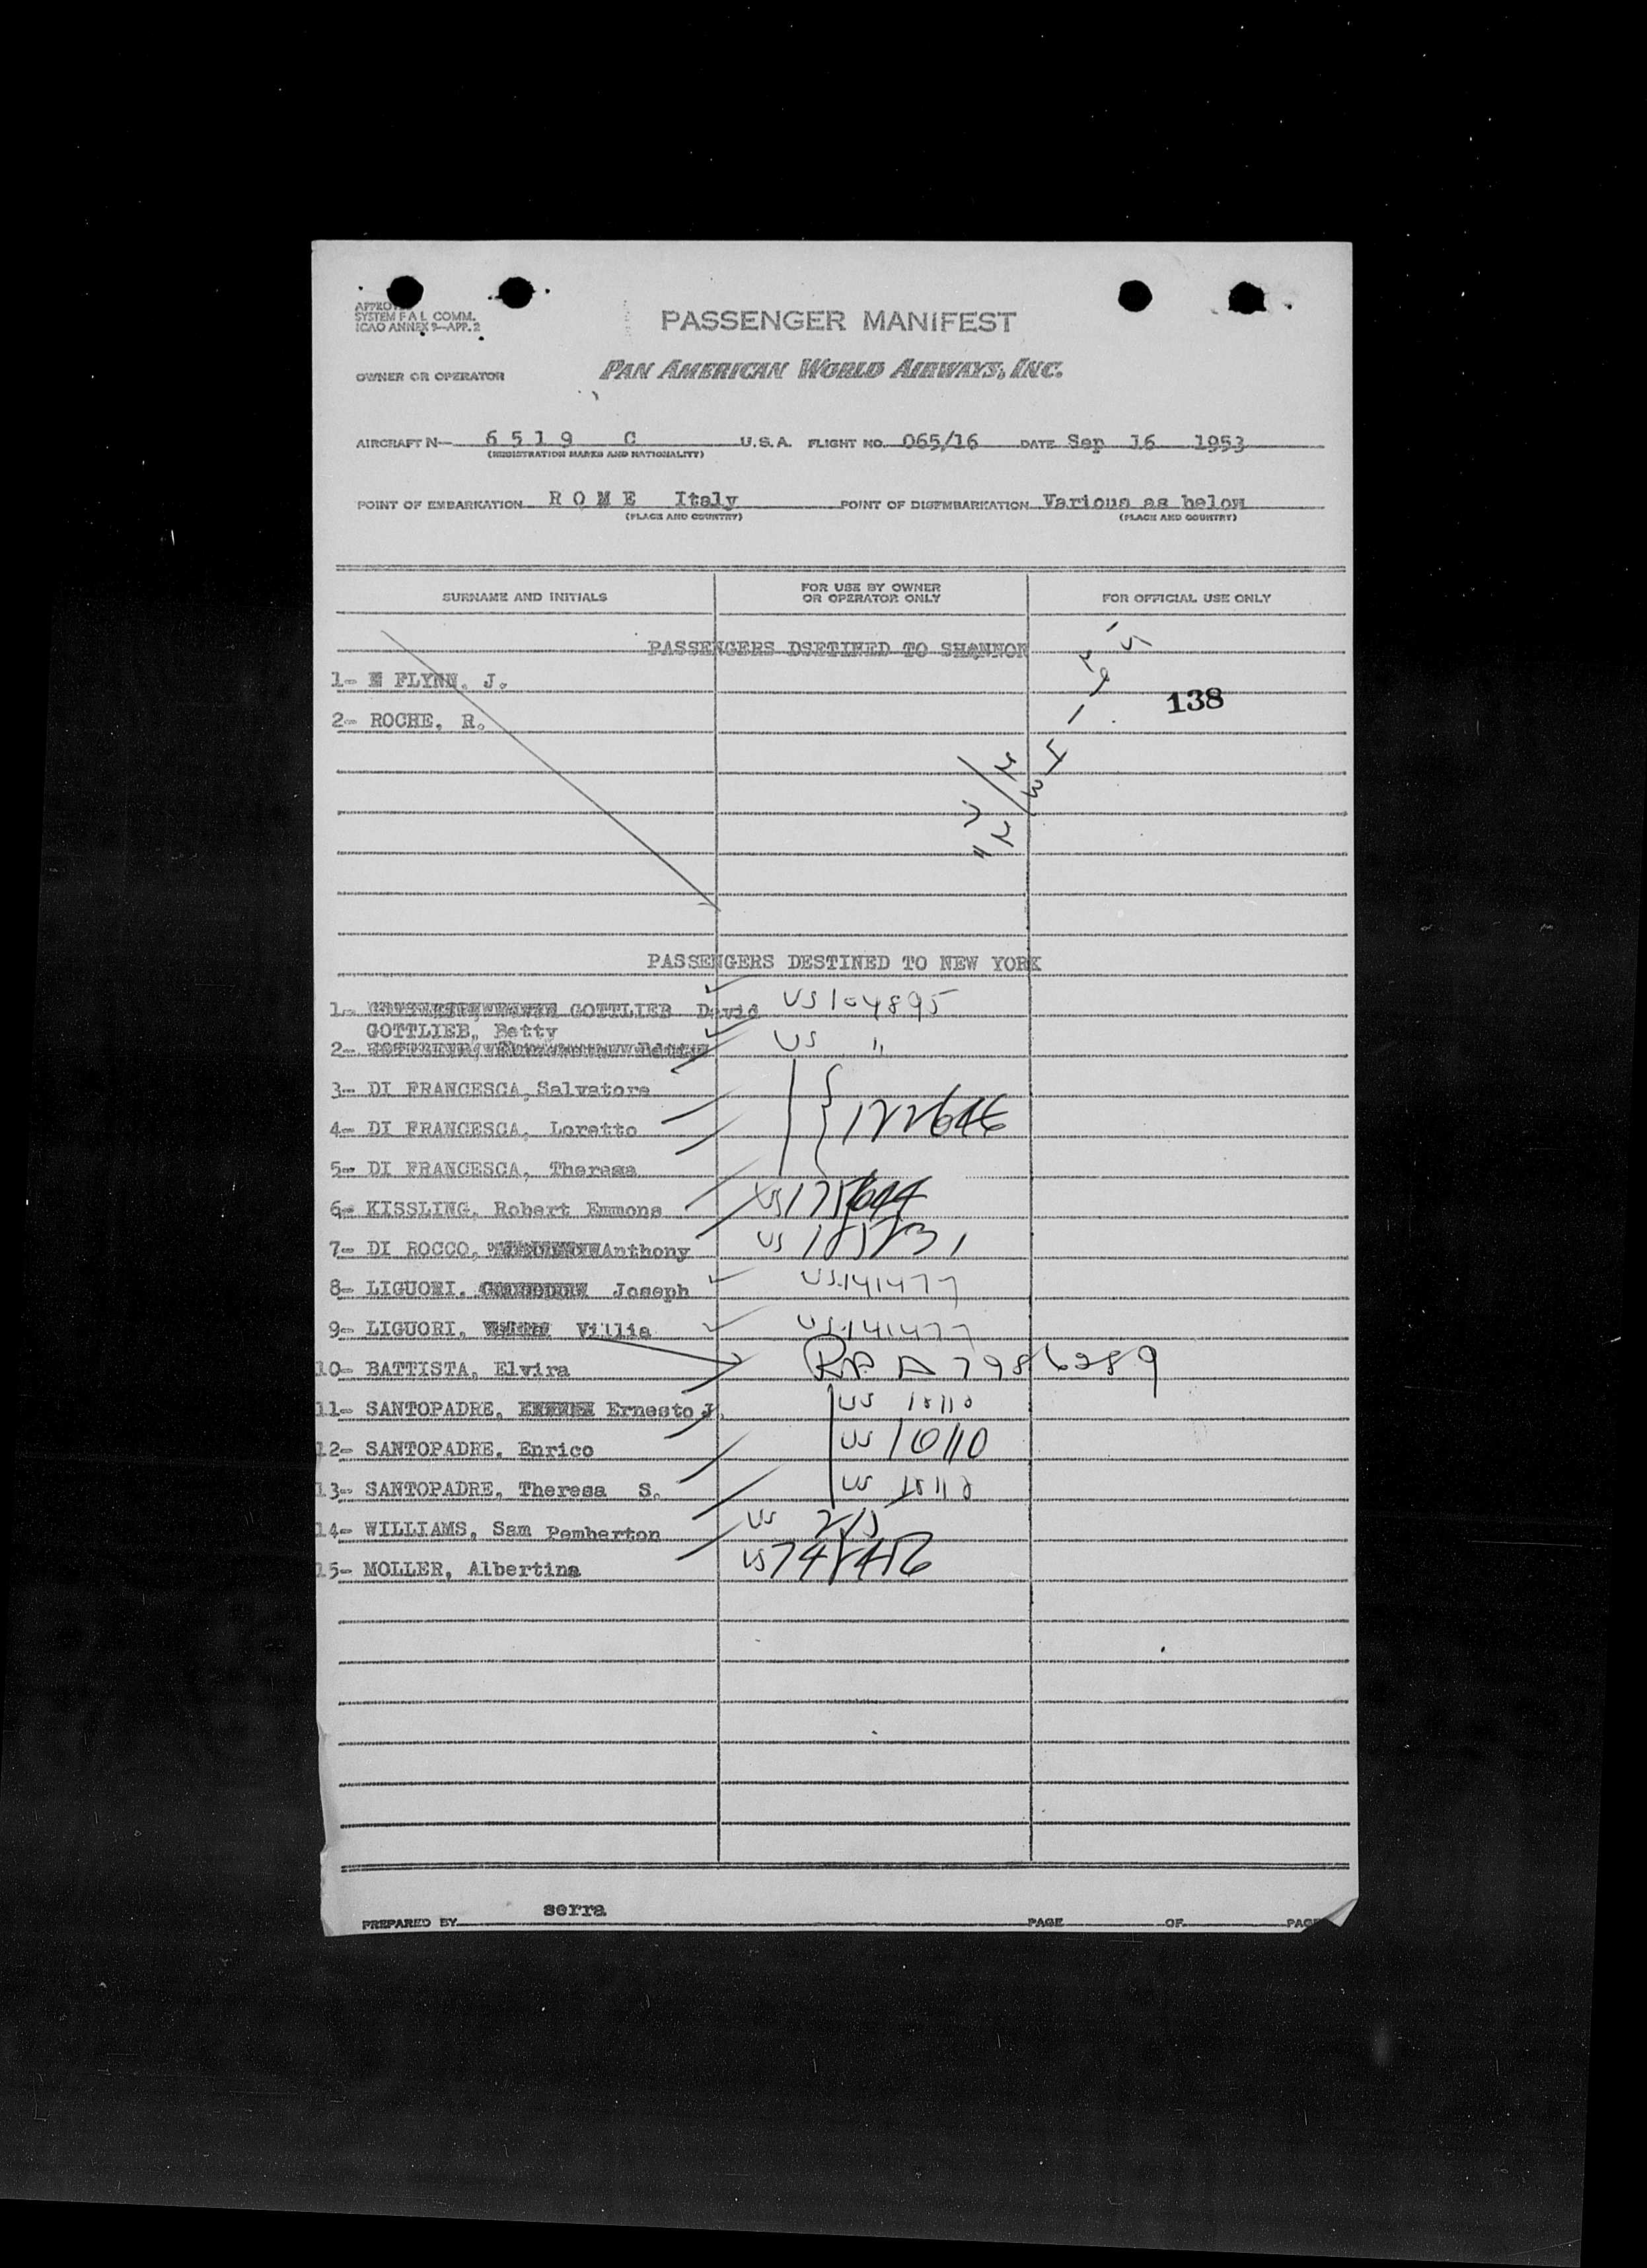 APPROVED
SYSTEM F A L COMM.
ICAO ANNEX 9—APP. 2
PASSENGER MANIFEST
OWNER OR OPERATOR PAN AMERICAN WORLD AIRWAYS, INC.
AIRCRAFT N— 6 5 1 9 C U.S.A. FLIGHT NO. 065/16 DATE Sep 16 1953
(REGISTRATION MARKS AND NATIONALITY)
POINT OF EMBARKATION R O M E Italy POINT OF DISEMBARKATION Various as below
(PLACE AND COUNTRY) (PLACE AND COUNTRY)
SURNAME AND INITIALS FOR USE BY OWNER OR OPERATOR ONLY FOR OFFICIAL USE ONLY
PASSENGERS DSETINED TO SHANNON
1- FLYNN. J.
138
2- ROCHE, R.
PASSENGERS DESTINED TO NEW YORK
1- GOTTLIEB David US 104895
GOTTLIEB, Betty
2- US "
3- DI FRANCESCA, Salvatore
4- DI FRANCESCA, Loretto 122646
5- DI FRANCESCA, Theresa
6- KISSLING, Robert Emmons US
7- DI ROCCO, Anthony US
8- LIGUORI. Joseph US 141477
9- LIGUORI, Villia US 141477
10- BATTISTA, Elvira RP. A 7986289
11- SANTOPADRE, Ernesto J. US 10110
12- SANTOPADRE, Enrico US 10110
13- SANTOPADRE, Theresa S. US 10110
14- WILLIAMS, Sam Pemberton US
15- MOLLER, Albertina US
PREPARED BY serra PAGE OF PAGE